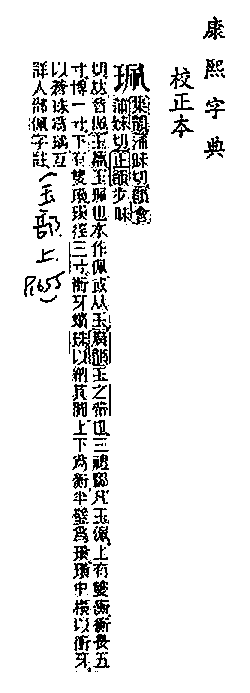 康熙字典
校正本
珮集韻蒲昧切韻會
蒲妹切正韻步昧
切𠀤音佩玉篇玉珮也本作佩或从玉廣韻玉之帶也三禮圖凡玉珮上有雙衡衡長五
寸博一寸下有雙璜璜徑三寸衝牙蠙珠以納其閒上下爲衡半璧爲璜璜中橫以衝牙
以蒼珠爲瑀互
詳人部佩字註(玉部上
P.655)